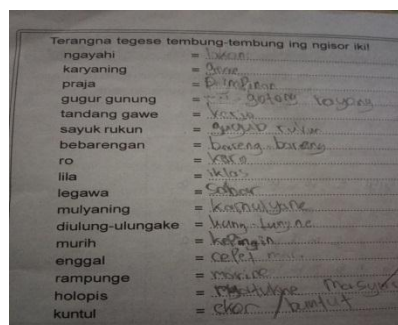 Terangna tegese tembung-tembung ing ngisor iki!
ngayahi =
karyaning = gawe
praja = pimpinan
gugur gunung = gotong royong
tandang gawe = kerja
sayuk rukun = guyub rukun
bebarengan = bareng-bareng
ro = karo
lila = iklas
legawa = sabar
mulyaning = kamulyane
diulung-ulungake =
murih = kepingin
enggal = cepet
rampunge =
holopis =
kuntul = ekor / buntut